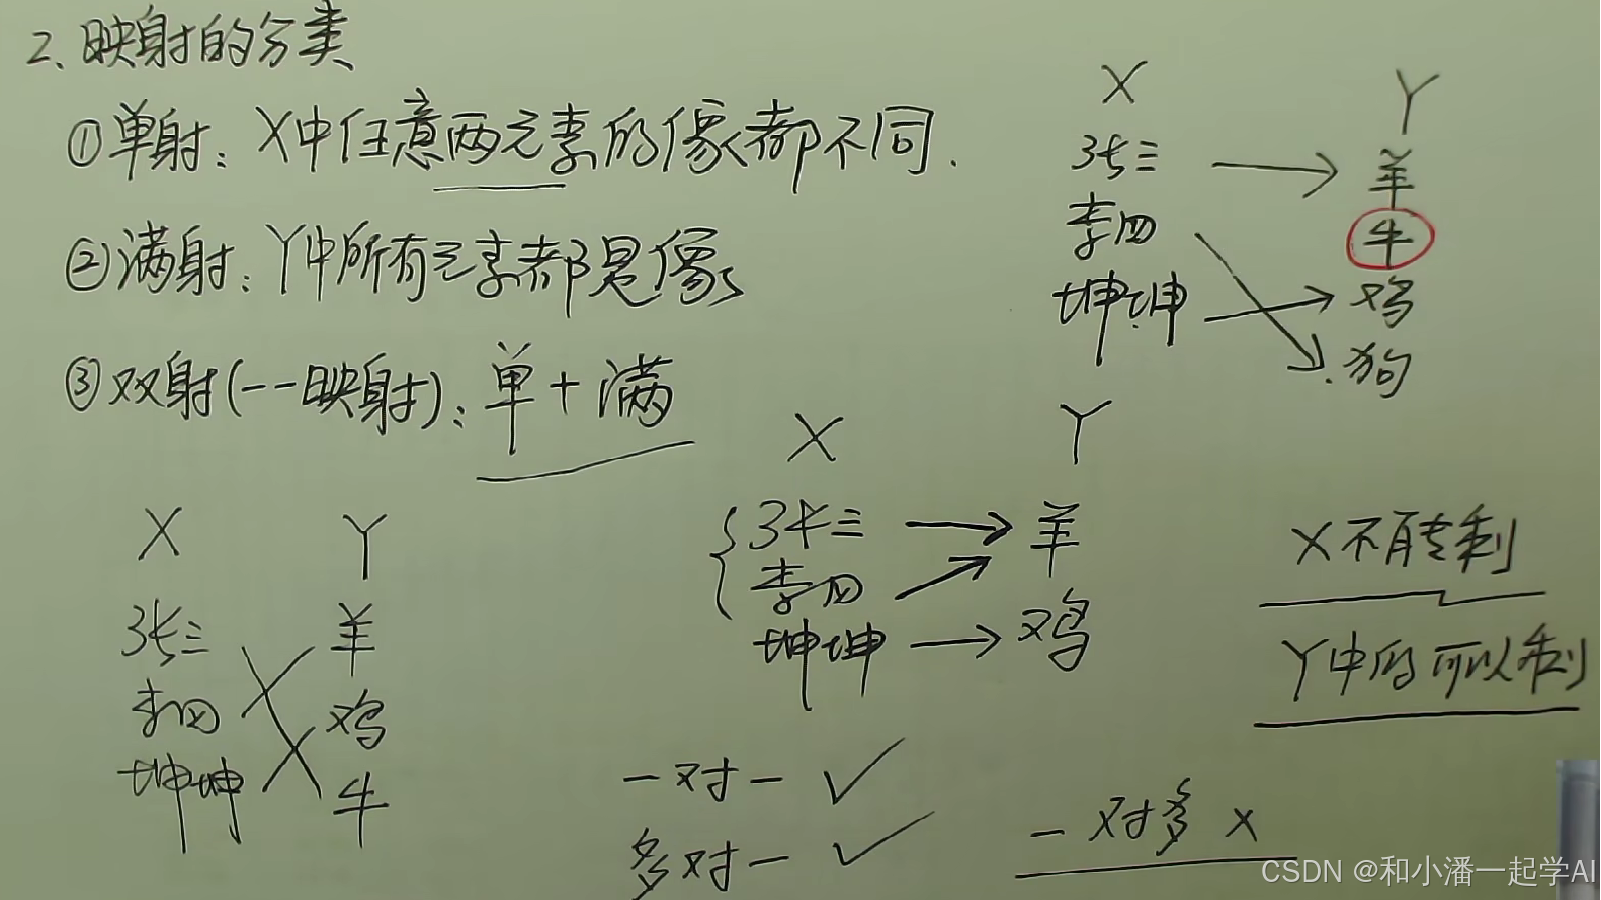 2、映射的分类
①单射：X中任意两元素的像都不同.
②满射：Y中所有元素都是像
③双射(一一映射)：单+满
X Y
张三 羊
李四 牛
坤坤 鸡
狗
X Y
张三 羊
李四
坤坤 鸡
X Y
张三 羊
李四 鸡
坤坤 牛
X不能剩
Y中的可以剩
一对一 ✓
多对一 ✓
一对多 ×
CSDN @和小潘一起学AI